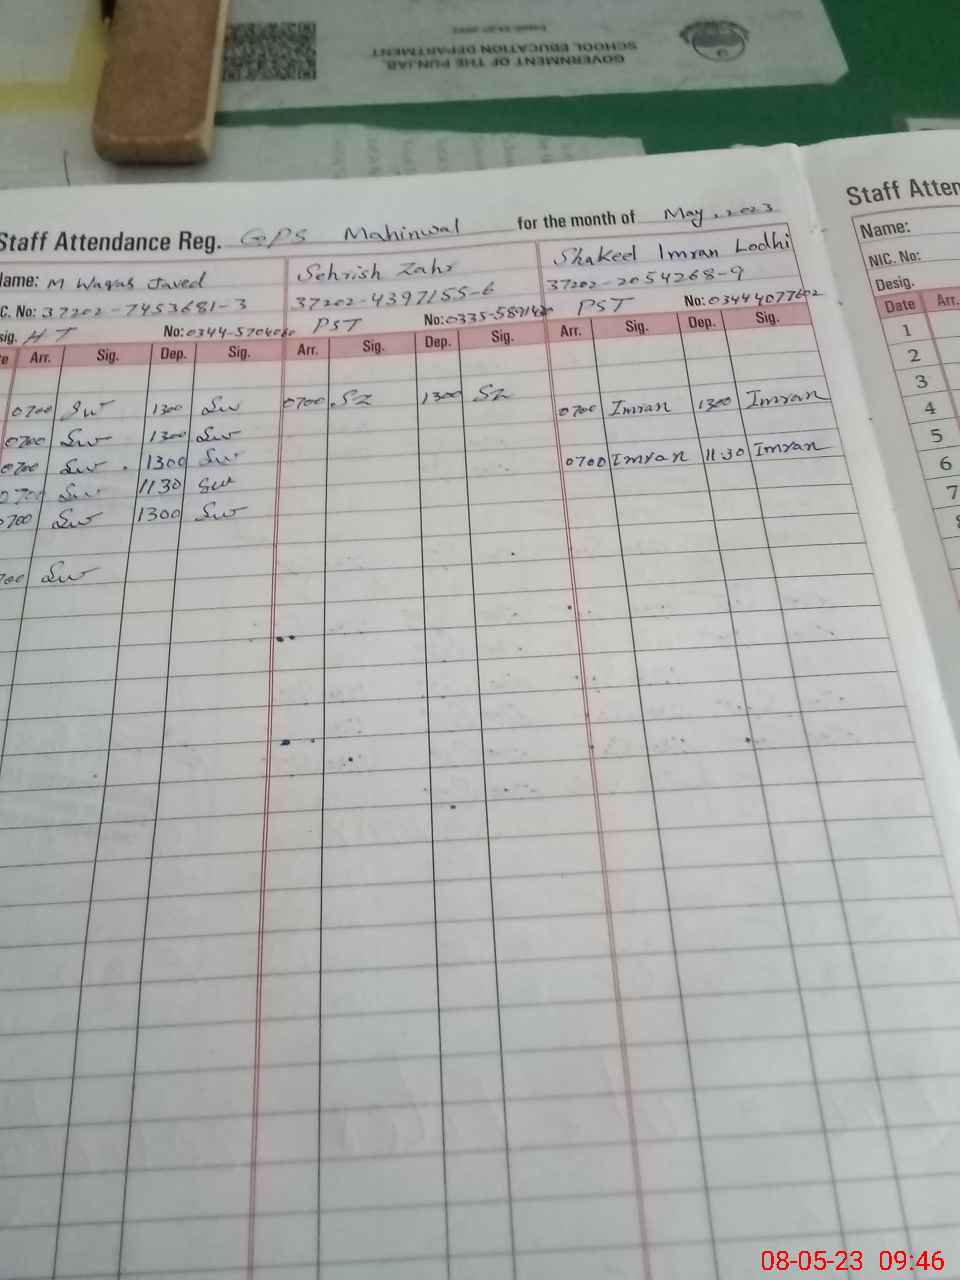 GOVERNMENT OF THE PUNJAB,
SCHOOL EDUCATION DEPARTMENT
Staff Attendance Reg. GPS Mahinwal for the month of May, 2023
Name: M Waqas Javed Sehrish Zahr Shakeel Imran Lodhi
C. No: 37202-7453681-3 37202-4397155-6 37202-2054268-9
sig. HT No: 0344-5704060 PST No: PST No: 03444077602
Arr. Sig. Dep. Sig. Arr. Sig. Dep. Sig. Arr. Sig. Dep. Sig.
0700 Sw 1300 Sw 0700 SZ 1300 SZ 0700 Imran 1300 Imran
0700 Sw 1300 Sw
0700 Sw 1300 Sw 0700 Imran 11 30 Imran
0700 Sw 1130 Sw
0700 Sw 1300 Sw
700 Sw
Staff Atten
Name:
NIC. No:
Desig.
Date Arr.
1
2
3
4
5
6
7
8
08-05-23 09:46